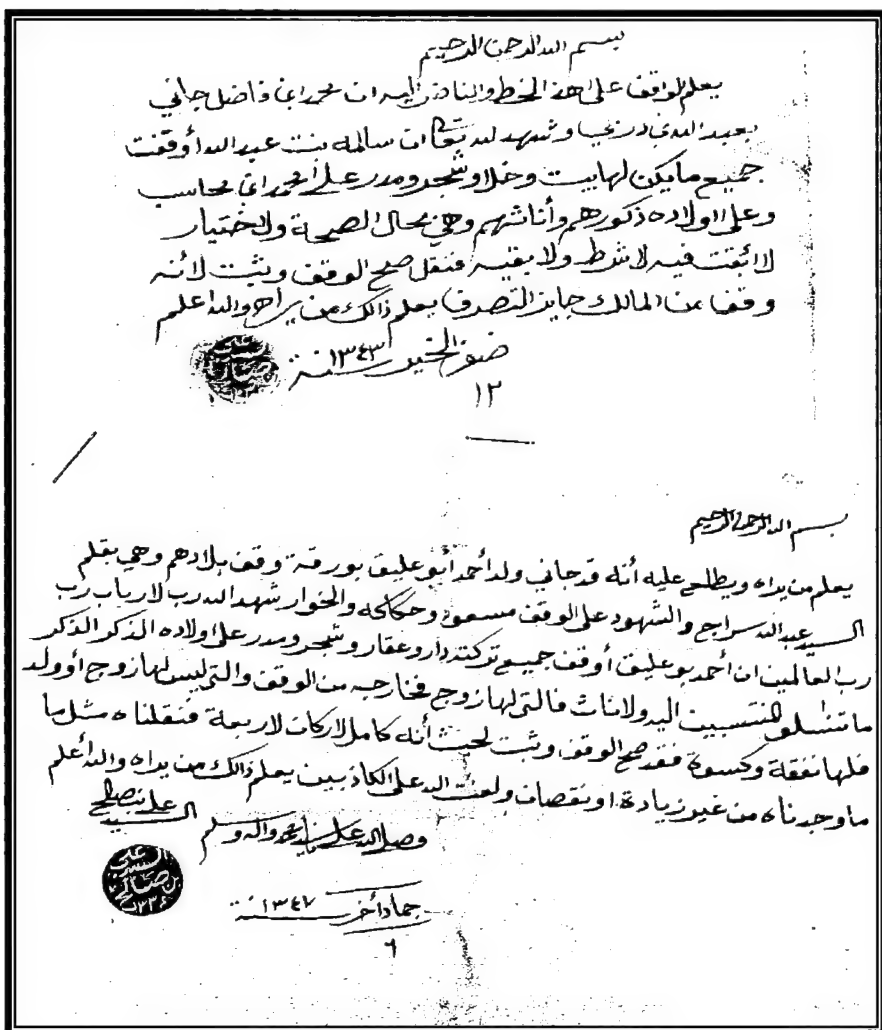 بسم الله الرحمن الرحيم
يعلم الواقف على هذا الخط والناضر اليه ان محمد ابن فاضل جاني
بعبد الله وشهد لله ان سالمه بنت عبد الله أوقفت
جميع مايكن لها بيت ونخل وشجر ومدر على محمد ابن محاسب
وعلى اولاده ذكورهم وأناثهم وهي بحال الصحة ولاختيار
لا ابقت فيه لا شرط ولا بقيه فنقل صح الوقف وثبت لانه
وقف من المالك جايز التصرف يعلم ذالك من يراه والله اعلم
صفر الخير سنة ١٣٤٣
١٢
بسم الله الرحمن الرحيم
يعلم من يراه ويطلع عليه أنه قد جاني ولد أحمد أبو عليق بورقة وقف بلادهم وهي بقلم
السيد عبد الله سراج والشهود على الوقف مسعود وحكاكه والخوار شهد الله رب لارباب رب
رب العالمين ان أحمد بو عليق أوقف جميع تركته دار وعقار وشجر ومدر على اولاده الذكر الذكر
ماتنسلو المنتسبين اليه ولاناث فالتي لها زوج فخارجه من الوقف والتي ليس لها زوج أو ولد
فلها نفقة وكسوة فقد صح الوقف وثبت لحيث أنه كامل لاركان لاربعة فنقلناه مثل ما
ماوجدناه من غير زيادة او نقصان ولعنت الله على الكاذبين يعلم ذالك من يراه والله أعلم
وصلى الله على سيدنا محمد واله وسلم السيد علي بن صالح
السيد علي بن صالح
جماد أخر سنة ١٣٤٧
٦